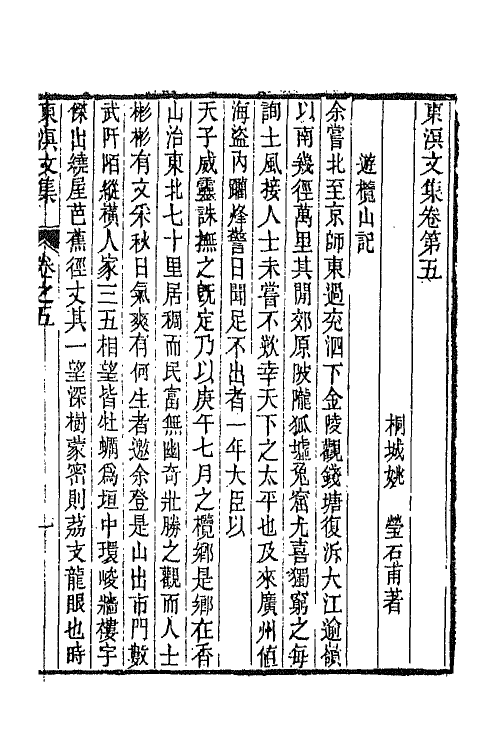 東溟文集卷第五
桐城姚 瑩石甫著
遊欖山記
余嘗北至京師東過兖泗下金陵觀錢塘復泝大江逾嶺
以南幾徑萬里其閒郊原陂隴狐墟兔窟尤喜獨窮之每
詢土風接人士未嘗不歎幸天下之太平也及來廣州值
海盜內躪烽警日聞足不出者一年大臣以
天子威靈誅撫之既定乃以庚午七月之欖鄉是鄉在香
山治東北七十里居稠而民富無幽奇壯勝之觀而人士
彬彬有文采秋日氣爽有何生者邀余登是山出市門數
武阡陌縱橫人家三五相望皆牡蠣為垣中環峻牆樓宇
傑出繞屋芭蕉徑丈其一望深樹蒙密則荔支龍眼也時
東溟文集 卷之五 一